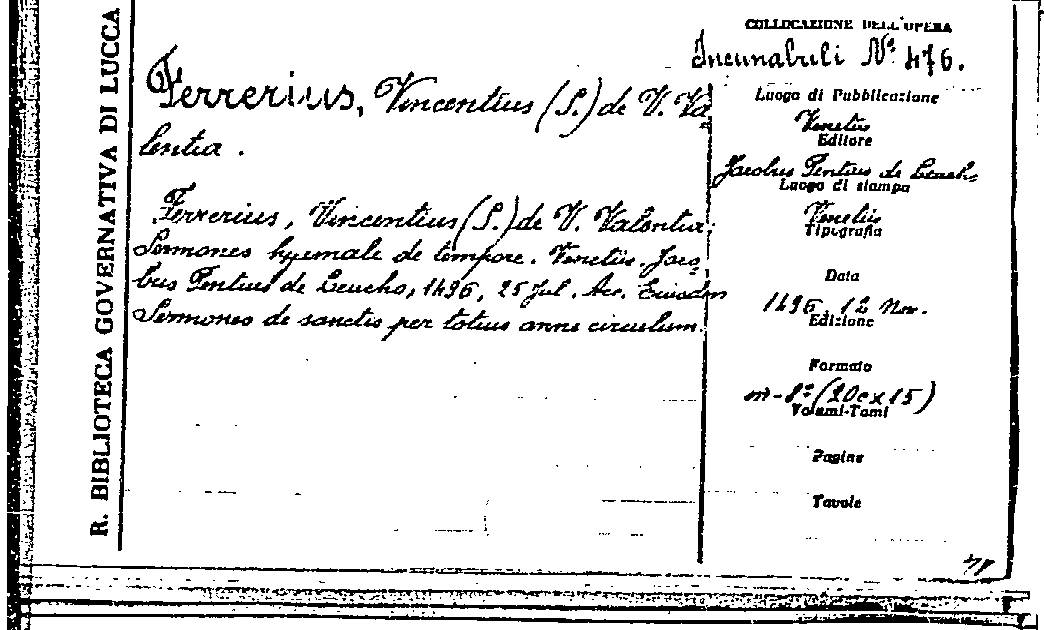 R. BIBLIOTECA GOVERNATIVA DI LUCCA
Ferrerius, Vincentius (S.) de V. Va=
lentia.
Ferrerius, Vincentius (S.) de V. Valentia.
Sermones hyemale de tempore. Venetiis. Jaco=
bus Pentius de Leucho, 1496, 25 Jul. Acc. Eiusdem
Sermones de sanctis per totius anni circulum.
COLLOCAZIONE DELL'OPERA
Incunabuli N.º 476.
Luogo di Pubblicazione
Venetiis
Editore
Jacobus Pentius de Leuch.
Luogo di stampa
Venetiis
Tipografia
Data
1496, 12 Nov.
Edizione
Formato
in-8º (20c x 15)
Volumi-Tomi
Pagine
Tavole